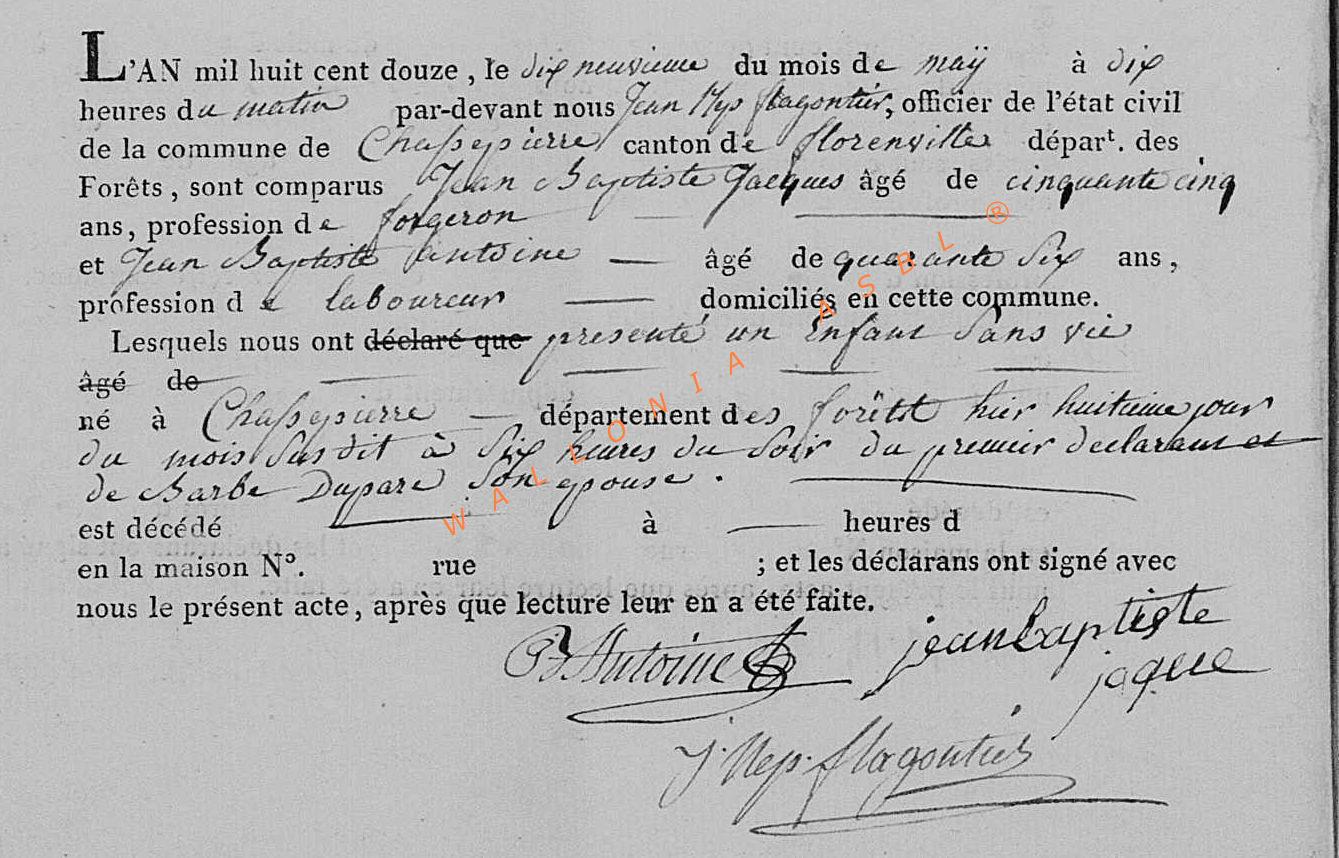 L'AN mil huit cent douze, le dix neuvieme du mois de maÿ à dix
heures du matin par-devant nous Jean Nep flagontier, officier de l'état civil
de la commune de Chassepierre canton de florenville départ. des
Forêts, sont comparus Jean Baptiste Jacques âgé de cinquante cinq
ans, profession de forgeron
et Jean Baptiste antoine âgé de quarante Six ans,
profession de laboureur domiciliés en cette commune.
Lesquels nous ont déclaré que presenté un Enfant Sans vie
âgé de
né à Chassepierre département des forêtt hier huitieme jour
du mois Susdit à Six heures du Soir du premier declarant et
de Barbe Duparc Son epouse.
est décédé à heures d
en la maison N°. rue ; et les déclarans ont signé avec
nous le présent acte, après que lecture leur en a été faite.
B Antoine jean baptiste
jaque
J. Nep. flagontier
WALLONIA ASBL ®